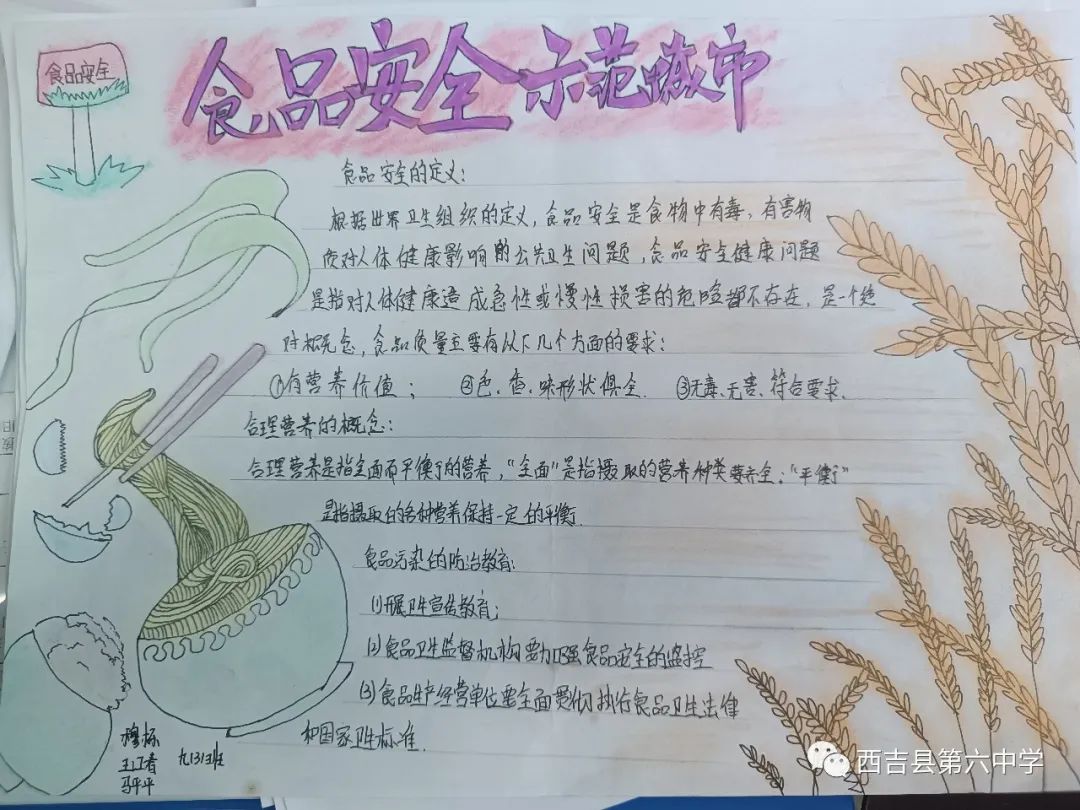 食品安全
食品安全示范城市
食品安全的定义:
根据世界卫生组织的定义,食品安全是食物中有毒、有害物
质对人体健康影响的公共卫生问题,食品安全健康问题
是指对人体健康造成急性或慢性损害的危险都不存在,是一个绝
对概念,食品质量主要有以下几个方面的要求:
①有营养价值; ②色、香、味形状俱全. ③无毒、无害、符合要求.
合理营养的概念:
合理营养是指全面而平衡的营养,“全面”是指摄取的营养种类要齐全;“平衡”
是指摄取的各种营养保持一定的平衡.
食品污染的防治教育:
(1)开展卫生宣传教育;
(2)食品卫生监督机构要加强食品安全的监控
(3)食品生产经营单位要全面贯彻执行食品卫生法律
和国家卫生标准.
穆栋
王江春
马平平
九(3)班
西吉县第六中学